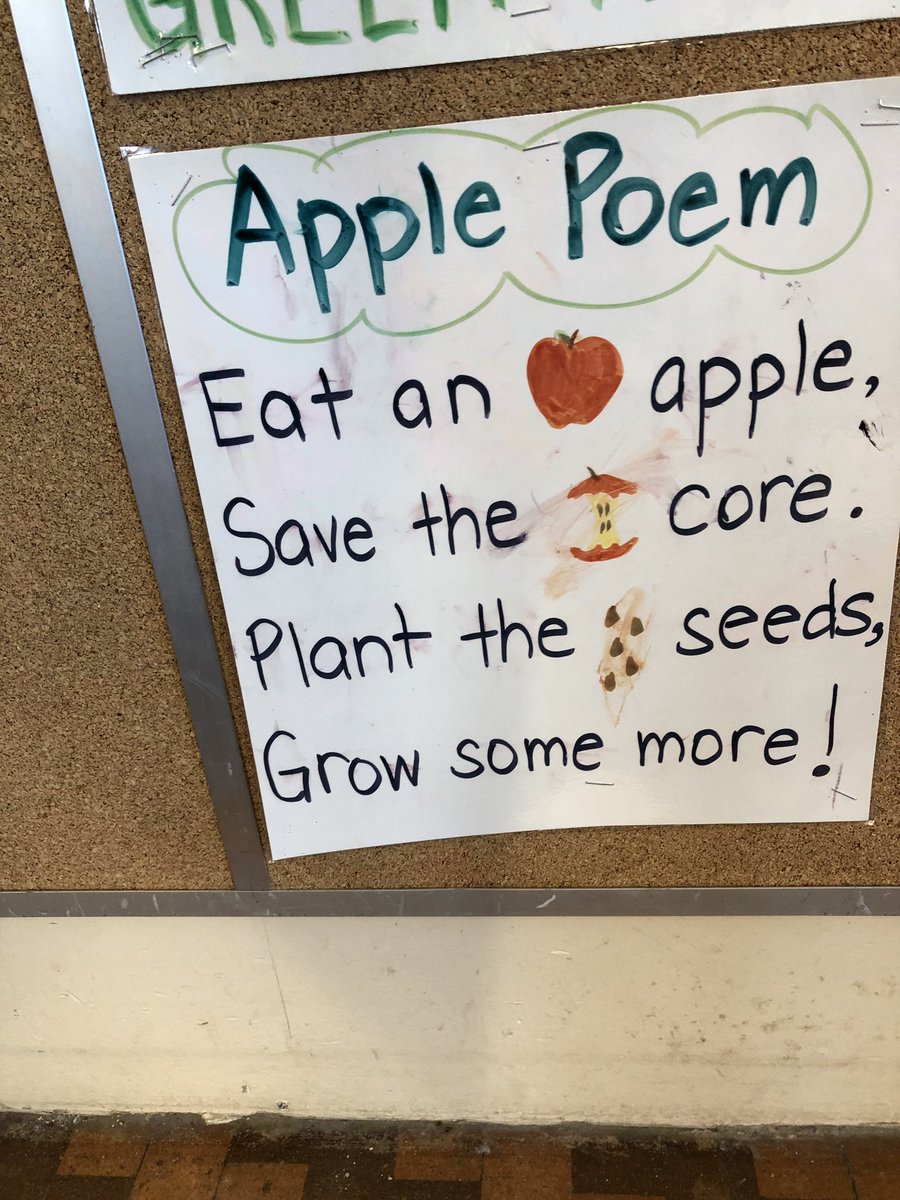 GREEN
Apple Poem
Eat an apple,
Save the core.
Plant the seeds,
Grow some more!